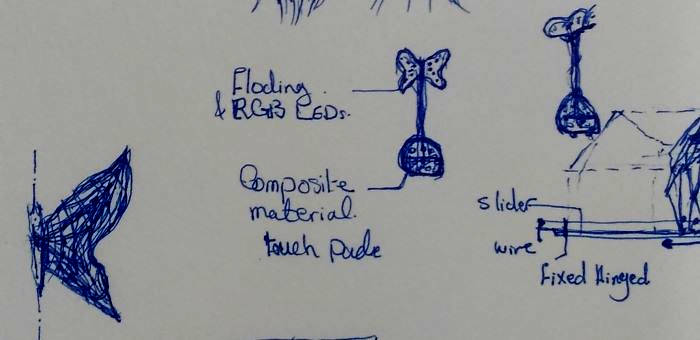 Floding
& RGB LEDs.
Composite
material.
touch pade
slider
wire
fixed Hinged